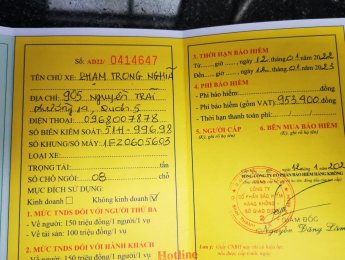 Số: AD22/ 0414647
TÊN CHỦ XE: PHẠM TRỌNG NGHĨA
ĐỊA CHỈ: 905 Nguyễn Trãi
phường 14, Quận 5
ĐIỆN THOẠI: 0968007878
SỐ BIỂN KIỂM SOÁT: 51H-996.98
SỐ KHUNG/SỐ MÁY: 1F20605603
LOẠI XE:
TRỌNG TẢI: tấn
SỐ CHỖ NGỒI: 08 chỗ
MỤC ĐÍCH SỬ DỤNG:
Kinh doanh Không kinh doanh
1. MỨC TNDS ĐỐI VỚI NGƯỜI THỨ BA
- Về người: 150 triệu đồng/1 người/1 vụ
- Về tài sản: 100 triệu đồng/1 vụ
2. MỨC TNDS ĐỐI VỚI HÀNH KHÁCH
triệu đồng/1 người/1 vụ
Hotline
3. THỜI HẠN BẢO HIỂM
Từ giờ , ngày 12 tháng 01 năm 2022
Đến giờ , ngày 12 tháng 01 năm 2023
4. PHÍ BẢO HIỂM
- Phí bảo hiểm: đồng
- Phí bảo hiểm (gồm VAT): 953.400 đồng
- Thời hạn thanh toán phí:
5. NGƯỜI CẤP 6. BÊN MUA BẢO HIỂM
(Ký, ghi rõ họ tên)
tháng 1 năm 202
TỔNG CÔNG TY CỔ PHẦN BẢO HIỂM HÀNG KHÔNG
CÔNG TY
CỔ PHẦN BẢO HIỂM
HÀNG KHÔNG
SỞ GIAO DỊCH
GIÁM ĐỐC
Nguyễn Đăng Lâm